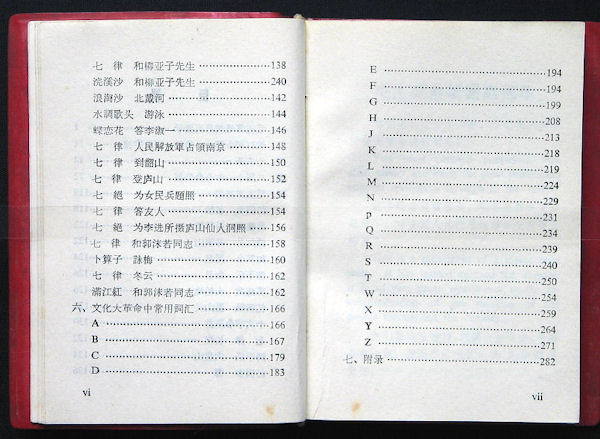 七 律 和柳亚子先生 ……………… 138
浣溪沙 和柳亚子先生 ……………… 240
浪淘沙 北戴河 ……………… 142
水調歌头 游泳 ……………… 144
蝶恋花 答李淑一 ……………… 146
七 律 人民解放軍占領南京 ……………… 148
七 律 到韶山 ……………… 150
七 律 登庐山 ……………… 152
七 絕 为女民兵題照 ……………… 154
七 律 答友人 ……………… 154
七 絕 为李进所摄庐山仙人洞照 ……………… 156
七 律 和郭沫若同志 ……………… 158
卜算子 詠梅 ……………… 160
七 律 冬云 ……………… 162
滿江紅 和郭沫若同志 ……………… 162
六、文化大革命中常用詞汇 ……………… 166
A ……………… 166
B ……………… 167
C ……………… 179
D ……………… 183
vi
E ……………… 194
F ……………… 194
G ……………… 199
H ……………… 208
J ……………… 213
K ……………… 218
L ……………… 219
M ……………… 224
N ……………… 229
P ……………… 231
Q ……………… 234
R ……………… 239
S ……………… 240
T ……………… 250
W ……………… 254
X ……………… 259
Y ……………… 264
Z ……………… 271
七、附录 ……………… 282
vii